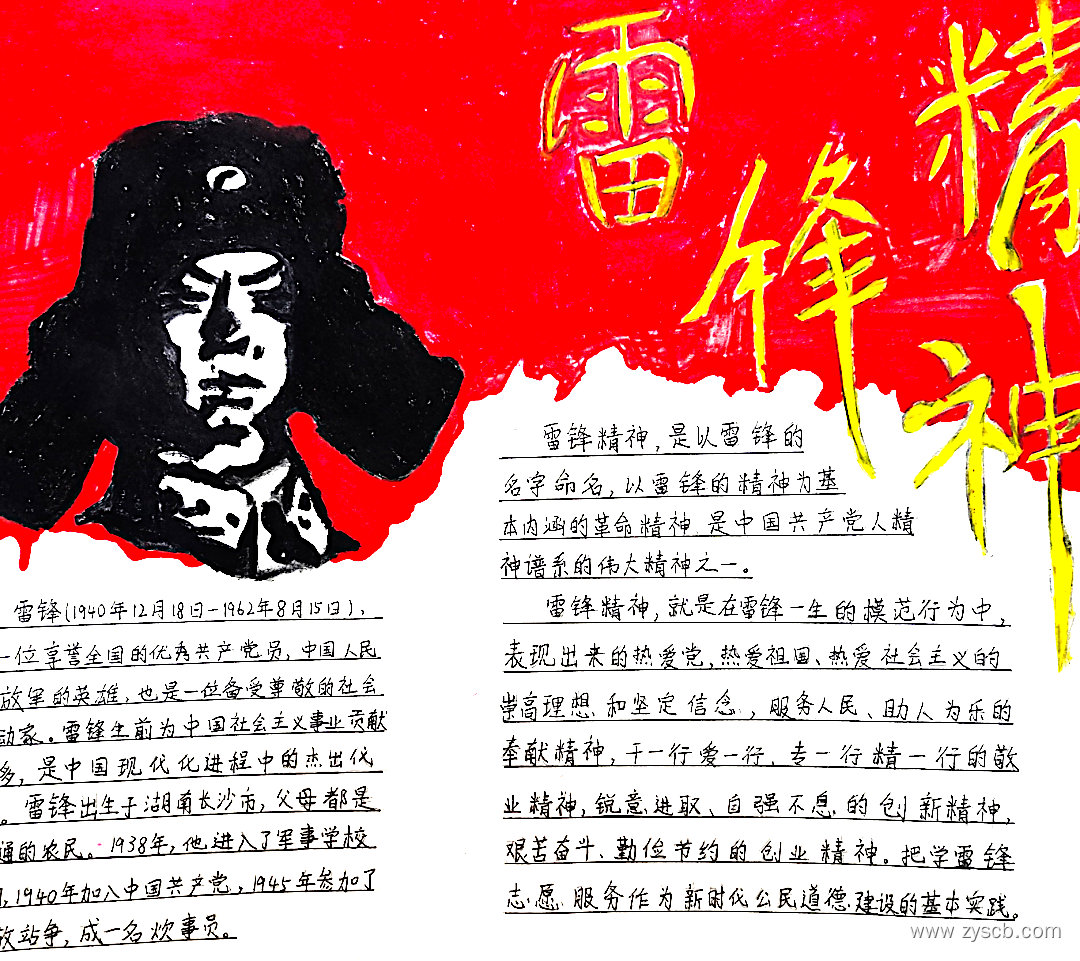 雷锋精神
雷锋精神,是以雷锋的
名字命名,以雷锋的精神为基
本内涵的革命精神 是中国共产党人精
神谱系的伟大精神之一。
雷锋精神,就是在雷锋一生的模范行为中,
表现出来的热爱党,热爱祖国、热爱社会主义的
崇高理想 和坚定信念,服务人民、助人为乐的
奉献精神,干一行爱一行、专一行精一行的敬
业精神,锐意进取、自强不息的创新精神,
艰苦奋斗、勤俭节约的创业精神。把学雷锋
志愿服务作为新时代公民道德建设的基本实践。
雷锋(1940年12月18日-1962年8月15日),
一位享誉全国的优秀共产党员,中国人民
放军的英雄,也是一位备受尊敬的社会
动家。雷锋生前为中国社会主义事业贡献
多,是中国现代化进程中的杰出代
。雷锋出生于湖南长沙市,父母都是
通的农民。1938年,他进入了军事学校
,1940年加入中国共产党,1945年参加了
放站争,成一名炊事员。
www.zyscb.com